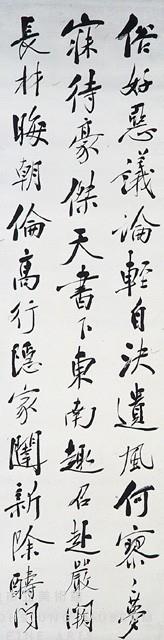 俗好惡議論輕自決遺風何寥〻夢
寐待豪傑天書下東南趣召赴嚴闕
長材晦朝倫高行隱家閨新除疇問